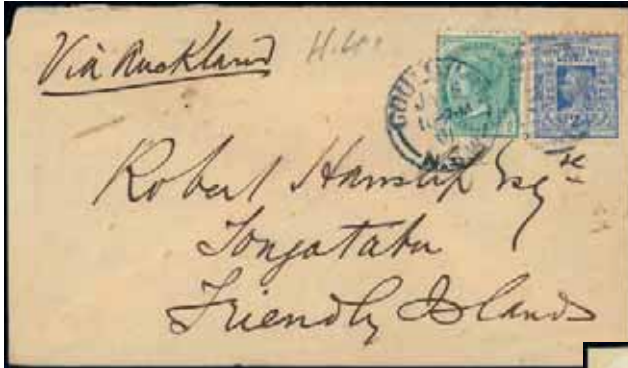 Via Auckland
Robert Hanslip Esqre
Tongatabu
Friendly Islands